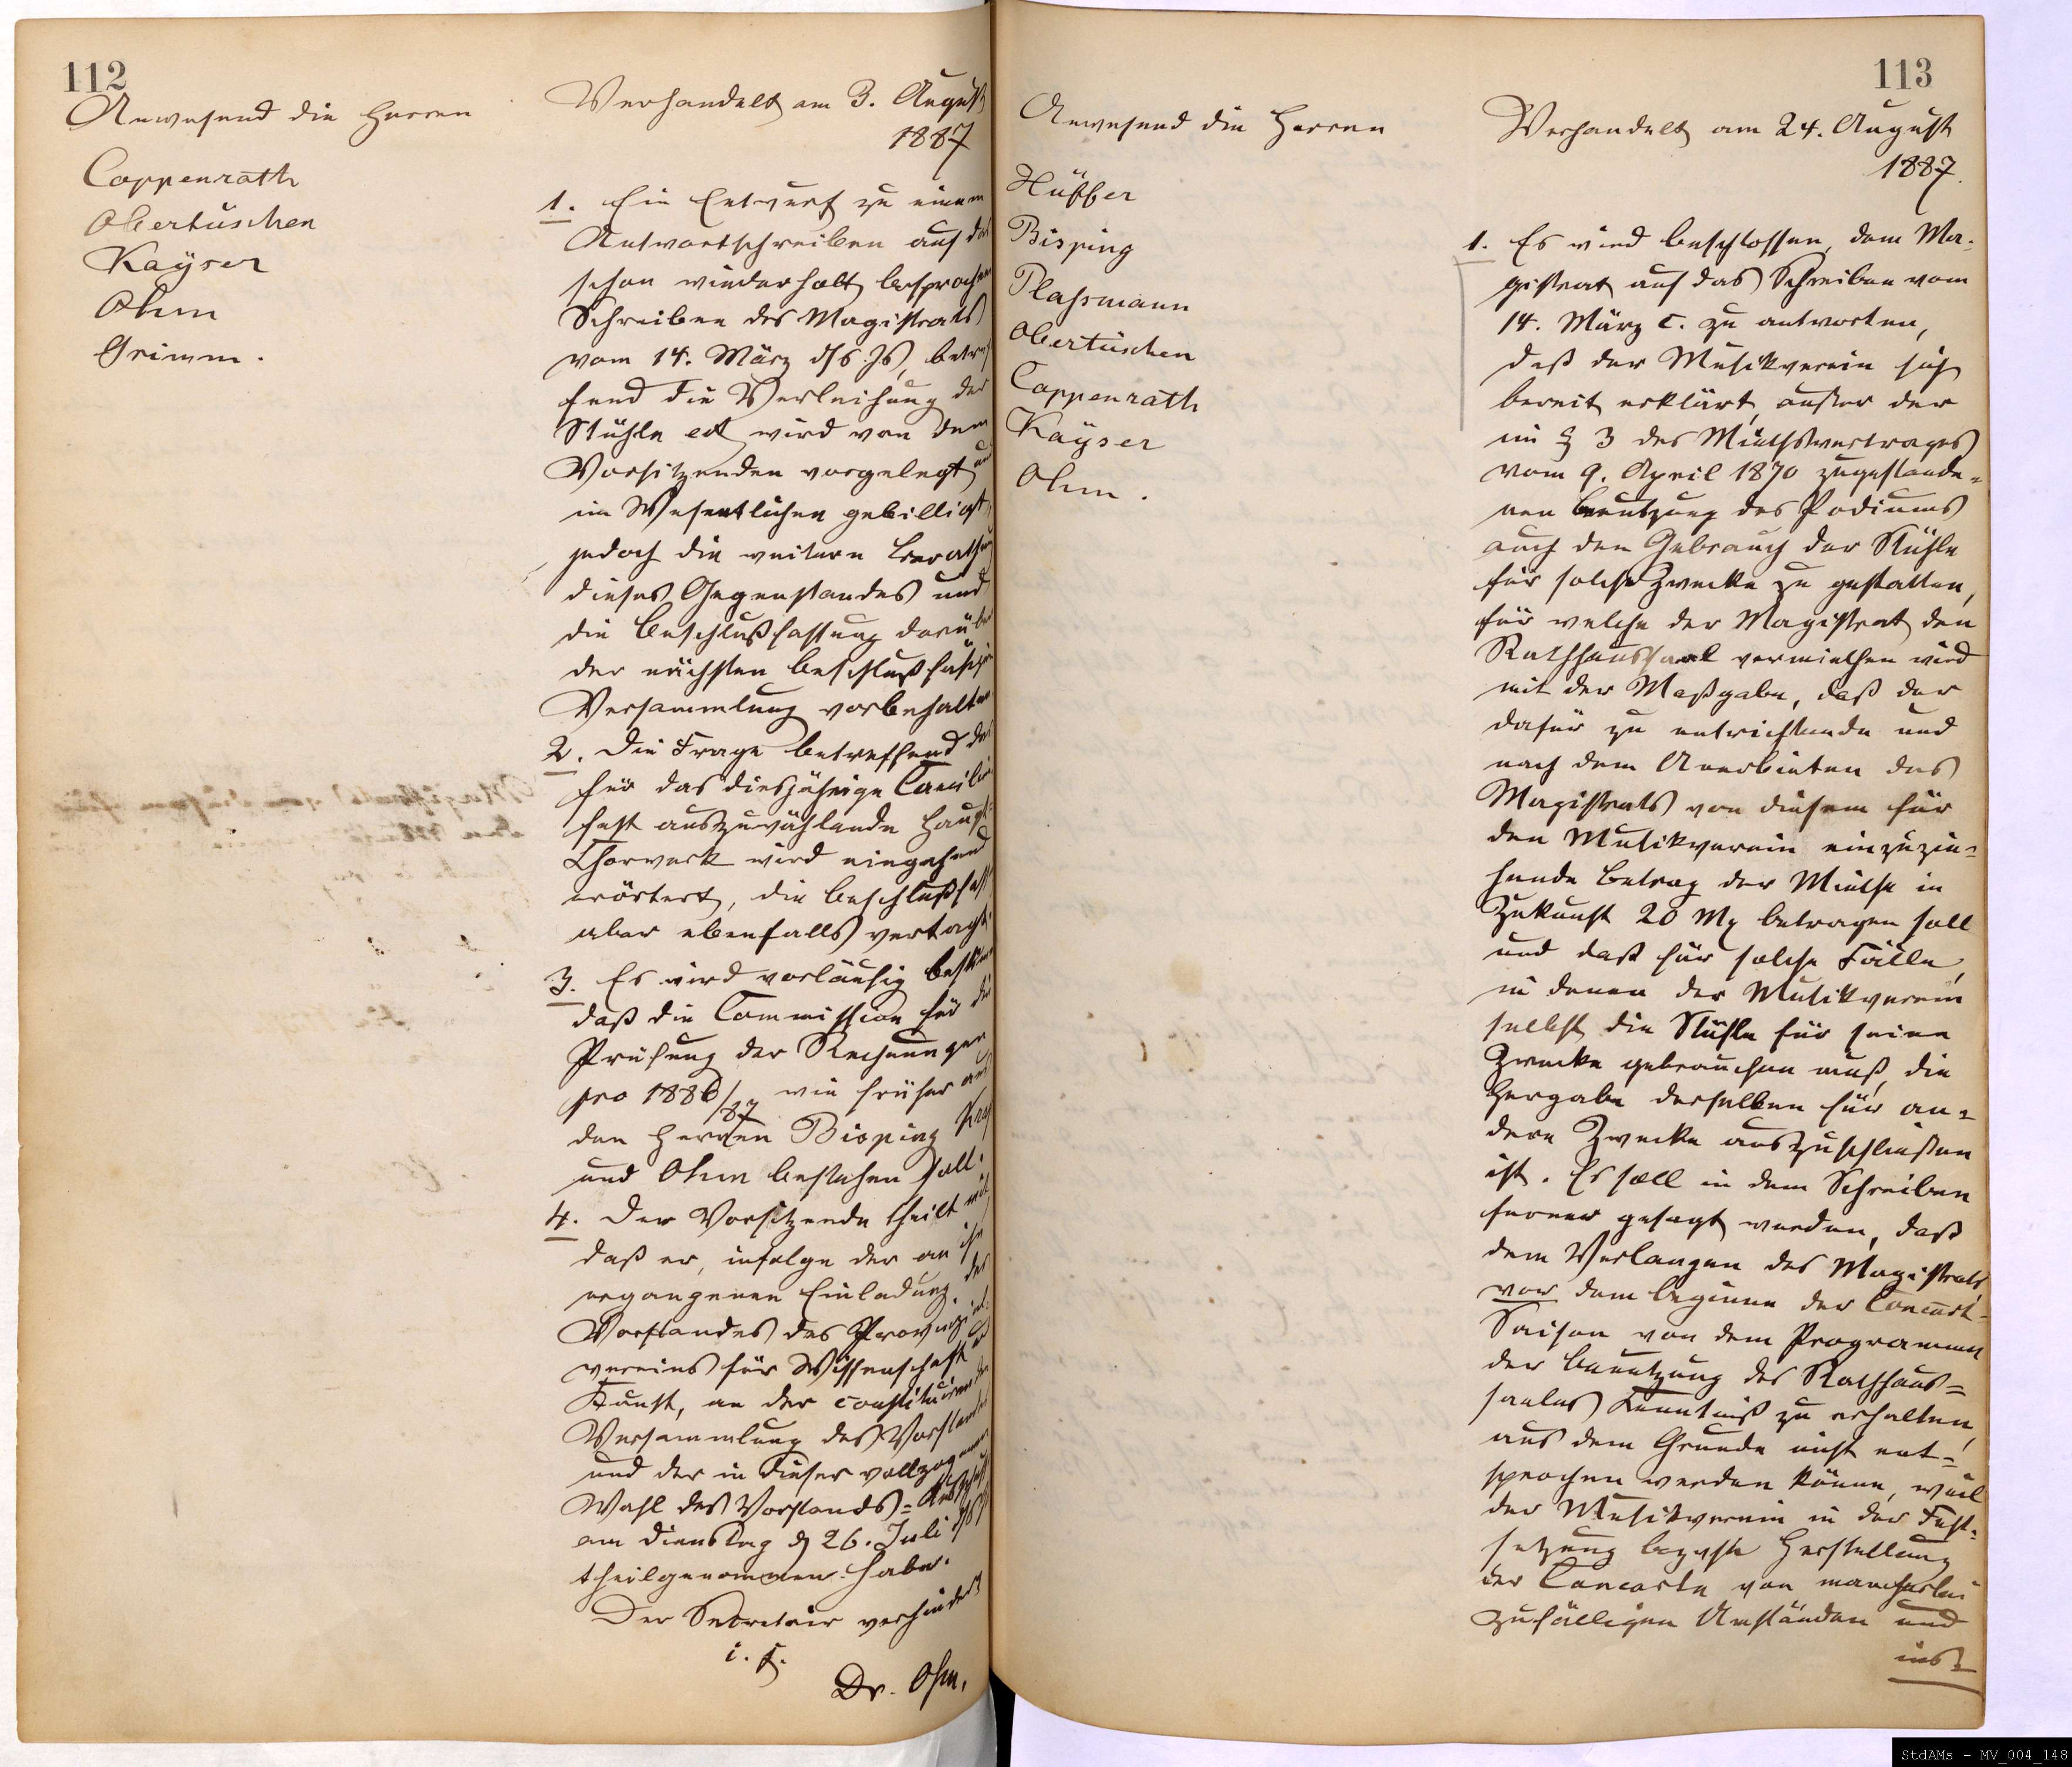 112
Anwesend die Herren
Coppenrath
Obertüschen
Kaÿser
Ohm
Grimm.
Verhandelt am 3. August
1887
1. Ein Entwurf zu einem
Antwortschreiben auf das
schon wiederholt besprochene
Schreiben des Magistrats
vom 14. März ds Js, betref
fend die Verleihung der
Stühle ect wird von dem
Vorsitzenden vorgelegt und
im Wesentlichen gebilligt,
jedoch die weitere Berathung
dieses Gegenstandes und
die Beschlußfassung darüber
der nächsten beschlußfähigen
Versammlung vorbehalten.
2. Die Frage betreffend das
für das diesjährige Cäcilien
fest auszuwählende Haupt-
Chorwerk wird eingehend
erörtert, die Beschlußfass
aber ebenfalls vertagt.
3. Es wird vorläufig bestimmt
daß die Commission für die
Prüfung der Rechnungen
pro 1886/87 wie früher aus
den Herren Bisping
und Ohm bestehen soll.
4. Der Vorsitzende theilt mit
daß er, infolge der an ihn
ergangenen Einladung des
Vorstandes des Provinzial-
vereins für Wissenschaft u
Kunst, an der constituirenden
Versammlung des Vorstandes
und der in dieser vollzogenen
Wahl des Vorstands-Ausschuß
am Dienstag d 26. Juli ds Js
theilgenommen habe.
Der Secretair verhindert
i. f.
Dr. Ohm.
113
Anwesend die Herren
Hüffer
Bisping
Plassmann
Obertüschen
Coppenrath
Kaÿser
Ohm.
Verhandelt am 24. August
1887.
1. Es wird beschlossen, dem Ma-
gistrat auf das Schreiben vom
14. März c. zu antworten,
daß der Musikverein sich
bereit erklärt, außer der
im § 3 des Miethsvertrages
vom 9. April 1870 zugestande-
nen Benutzung des Podiums
auch den Gebrauch der Stühle
für solche Zwecke zu gestatten,
für welche der Magistrat den
Rathhaussaal vermiethen wird
mit der Maßgabe, daß der
dafür zu entrichtende und
nach dem Anerbieten des
Magistrats von diesem für
den Musikverein einzuzie-
hende Betrag der Miethe in
Zukunft 20 Mk betragen soll
und daß für solche Fälle,
in denen der Musikverein
selbst die Stühle für seine
Zwecke gebrauchen muß, die
Hergabe derselben für an-
dere Zwecke auszuschließen
ist. Es soll in dem Schreiben
ferner gesagt werden, daß
dem Verlangen des Magistrats,
vor dem Beginne der Concert-
Saison von dem Programm
der Benutzung des Rathhaus-
saales Kenntniß zu erhalten,
aus dem Grunde nicht ent-
sprochen werden könne, weil
der Musikverein in der Fest-
setzung bezgsw Herstellung
der Concerte von mancherlei
zufälligen Umständen und
ins-
StdAMs - MV_004_148